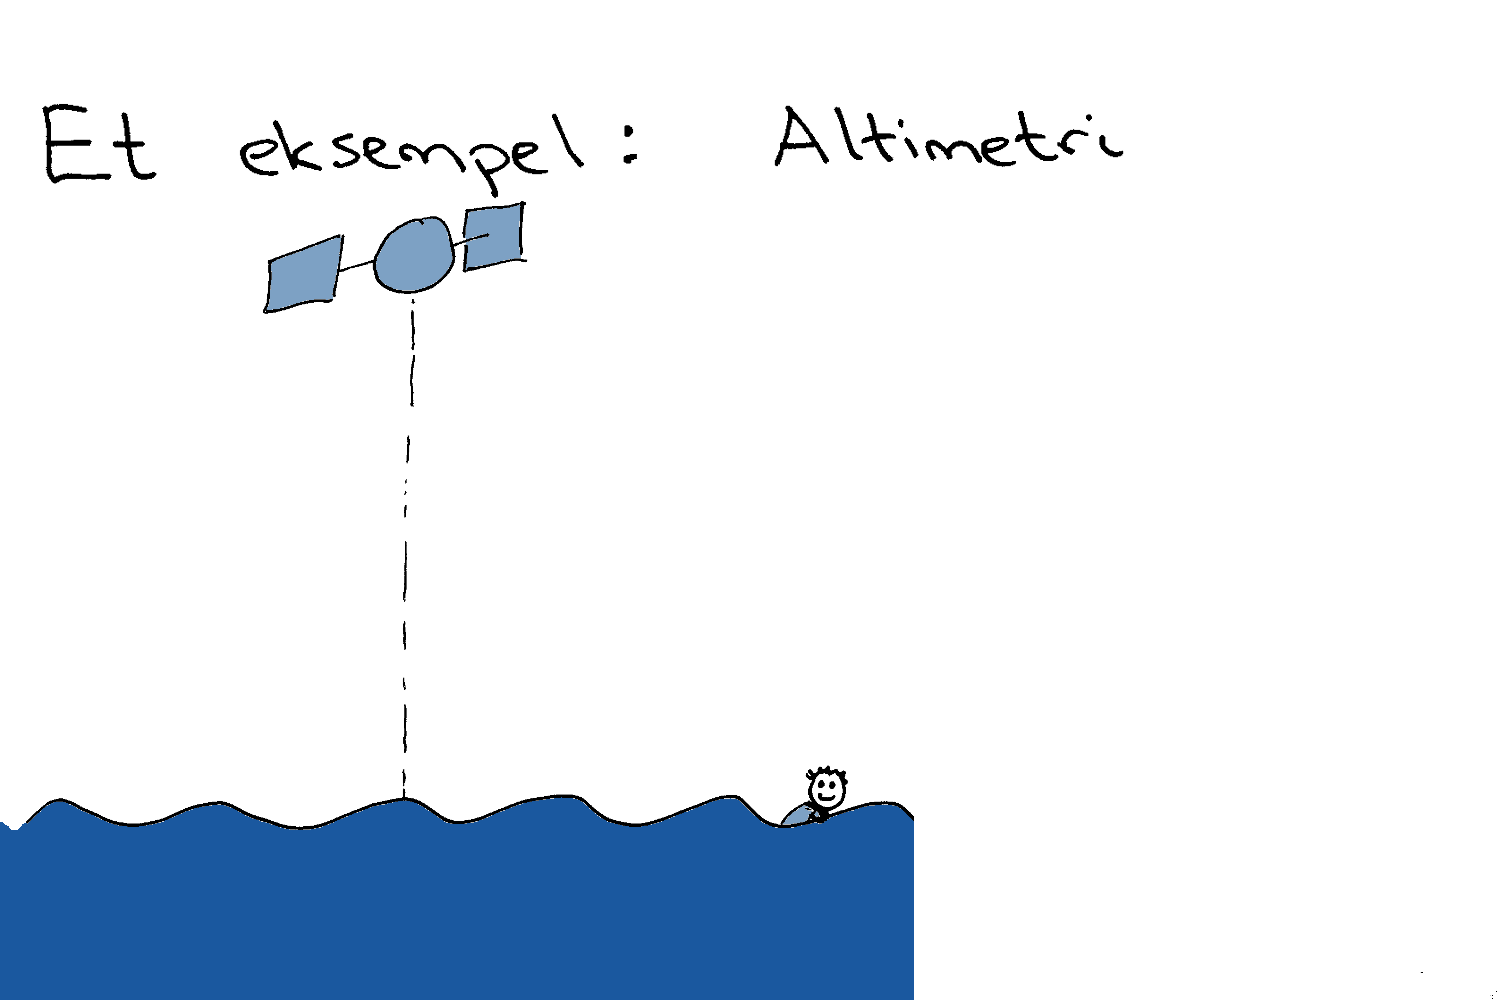 Et eksempel: Altimetri